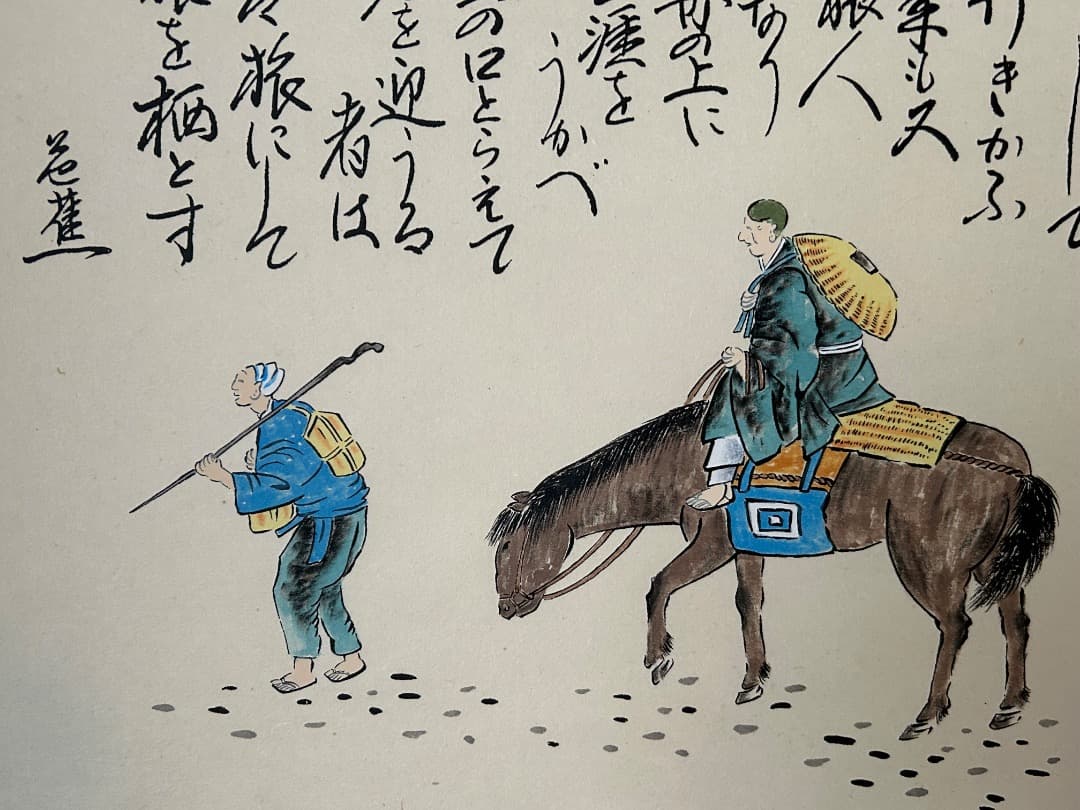 して
行きかふ
年も又
旅人
なり
舟の上に
生涯を
うかべ
の口とらえて
を迎うる
者は
々旅にして
旅を栖とす
芭蕉